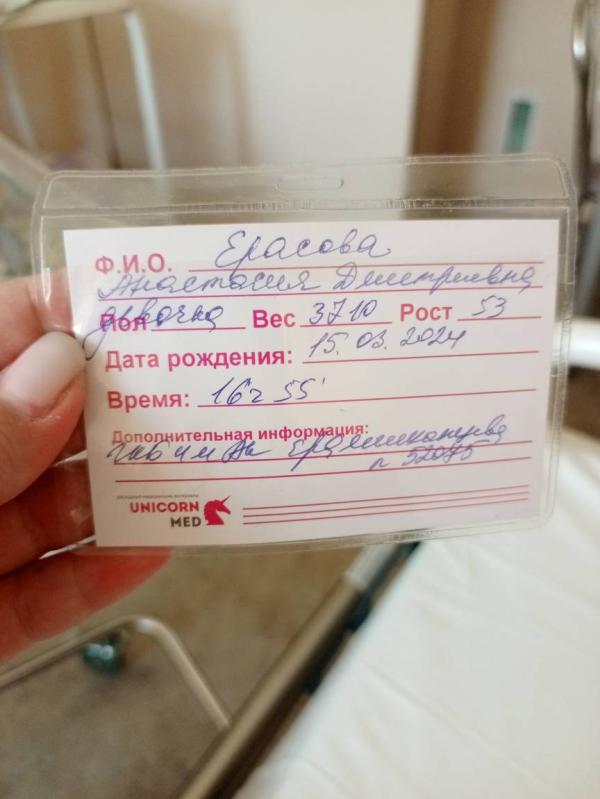 Ф.И.О. Ерасова
Анастасия Дмитриевна
Пол девочка Вес 3710 Рост 53
Дата рождения: 15.03.2024
Время: 16ч 55'
Дополнительная информация:
52075
UNICORN
MED